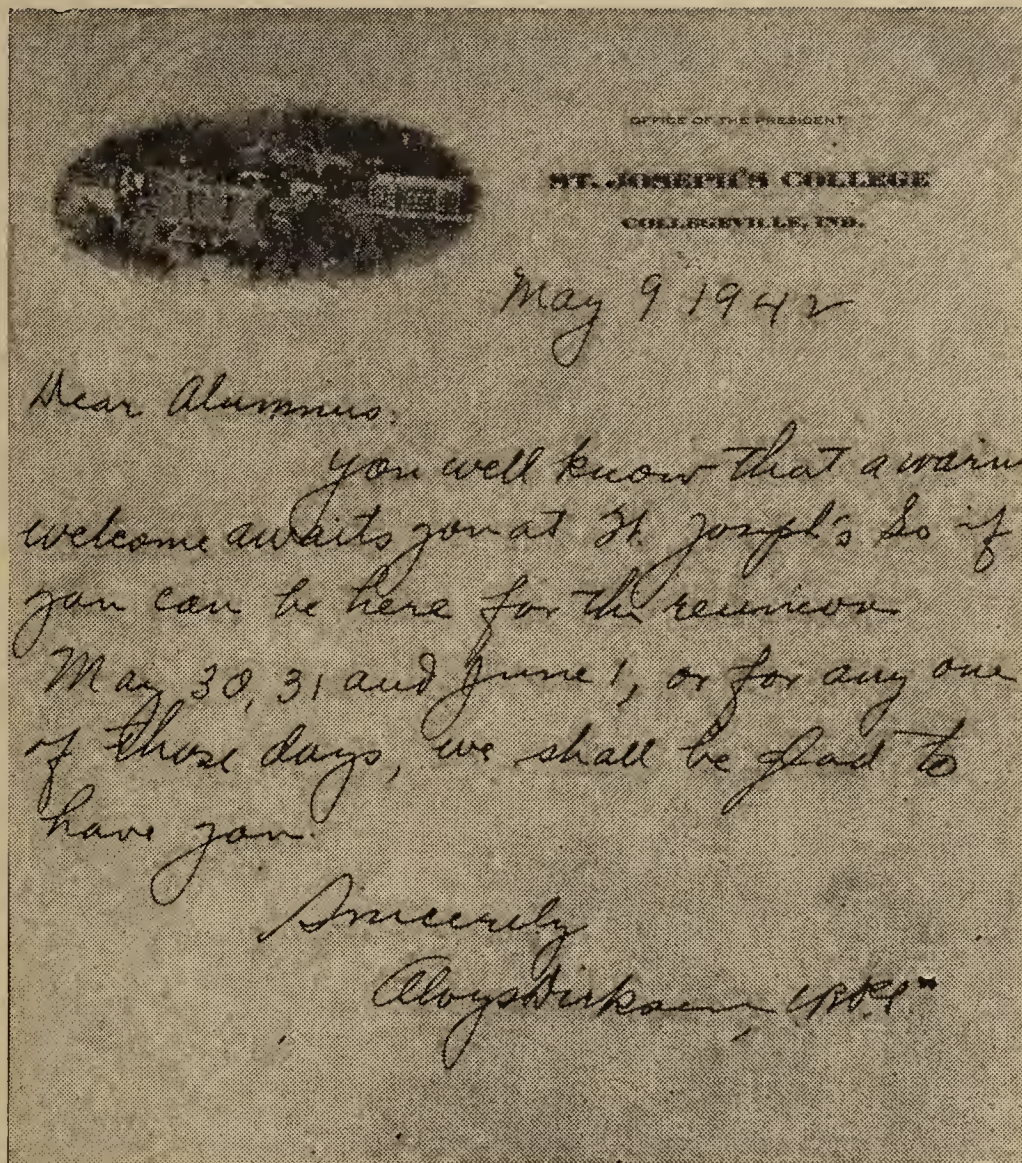 OFFICE OF THE PRESIDENT
ST. JOSEPH'S COLLEGE
COLLEGEVILLE, IND.
May 9 1942
Dear Alumnus:
You well know that a warm
welcome awaits you at St. Joseph's So if
you can be here for the reunion
May 30, 31 and June 1, or for any one
of those days, we shall be glad to
have you.
Sincerely
Aloys Dirksen,